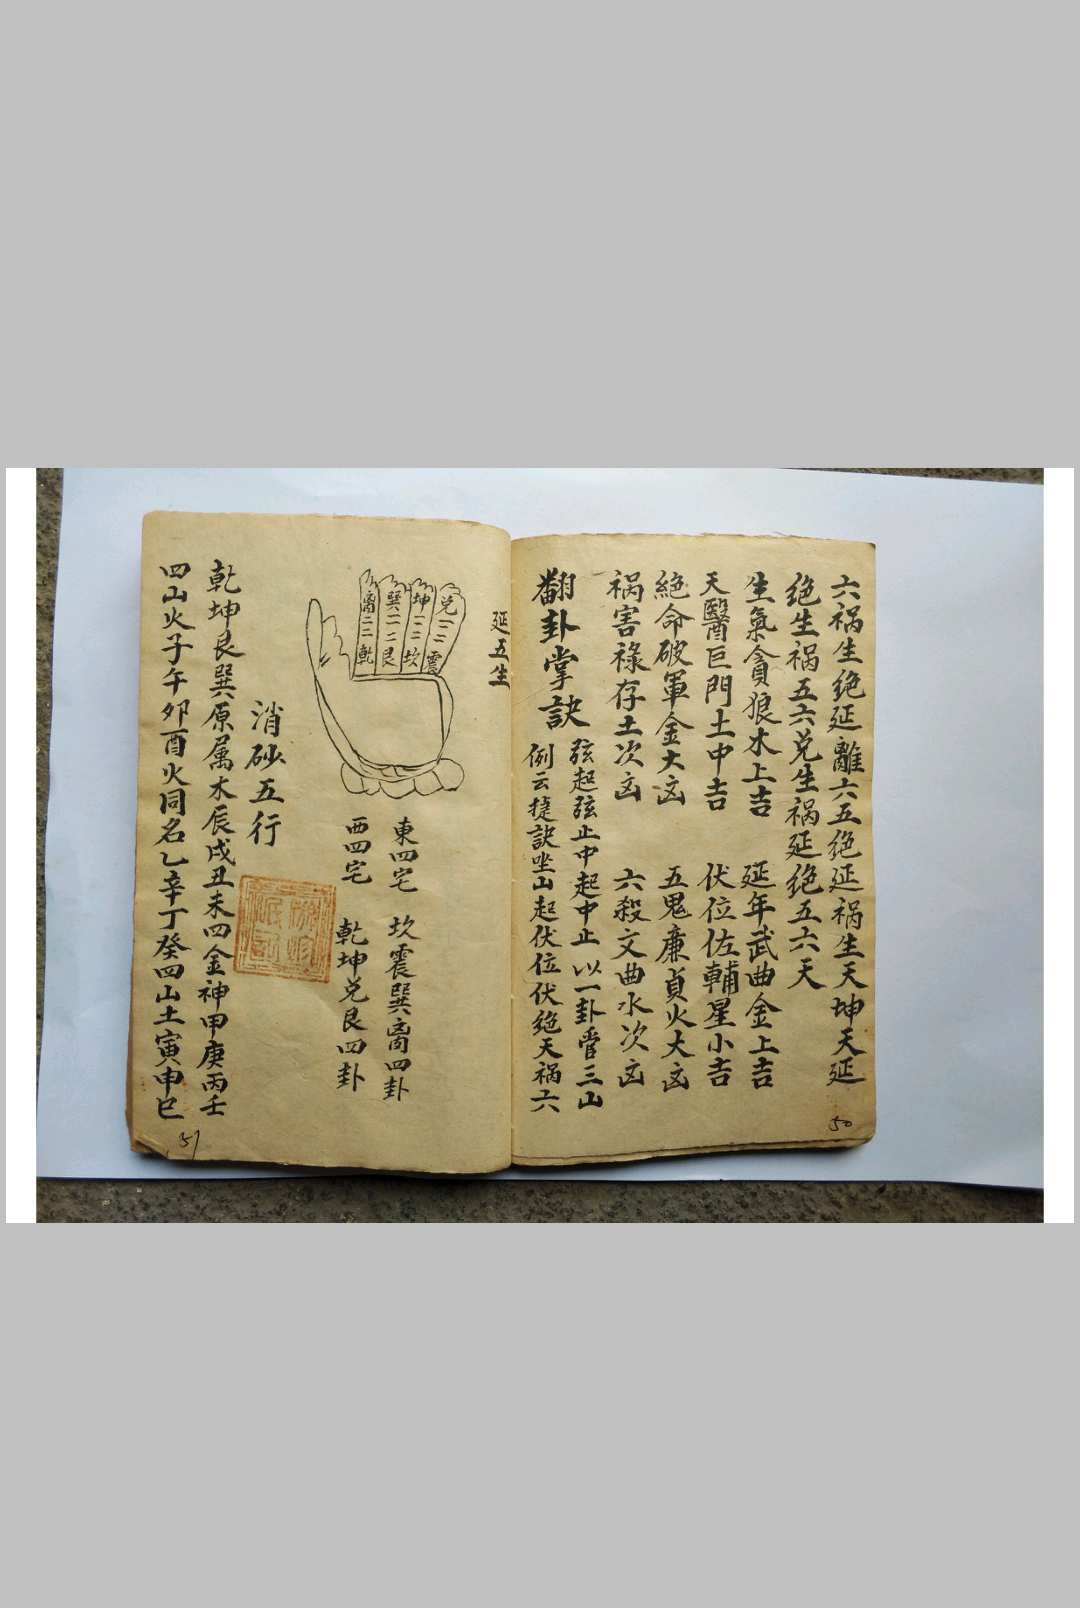 六祸生绝延離六五绝延祸生天坤天延
绝生祸五六兑生祸延绝五六天
生氣貪狼木上吉 延年武曲金上吉
天醫巨門土中吉 伏位佐輔星小吉
絕命破軍金大凶 五鬼廉貞火大凶
祸害祿存土次凶 六殺文曲水次凶
翻卦掌訣
弦起弦止中起中止以一卦管三山
例云捷訣坐山起伏位伏绝天祸六
50
延五生
兑三三震
坤三三坎
巽二三艮
離三三乾
東四宅 坎震巽離四卦
西四宅 乾坤兑艮四卦
消砂五行
乾坤艮巽原属木辰戌丑未四金神甲庚丙壬
四山火子午卯酉火同名乙辛丁癸四山土寅申巳
51